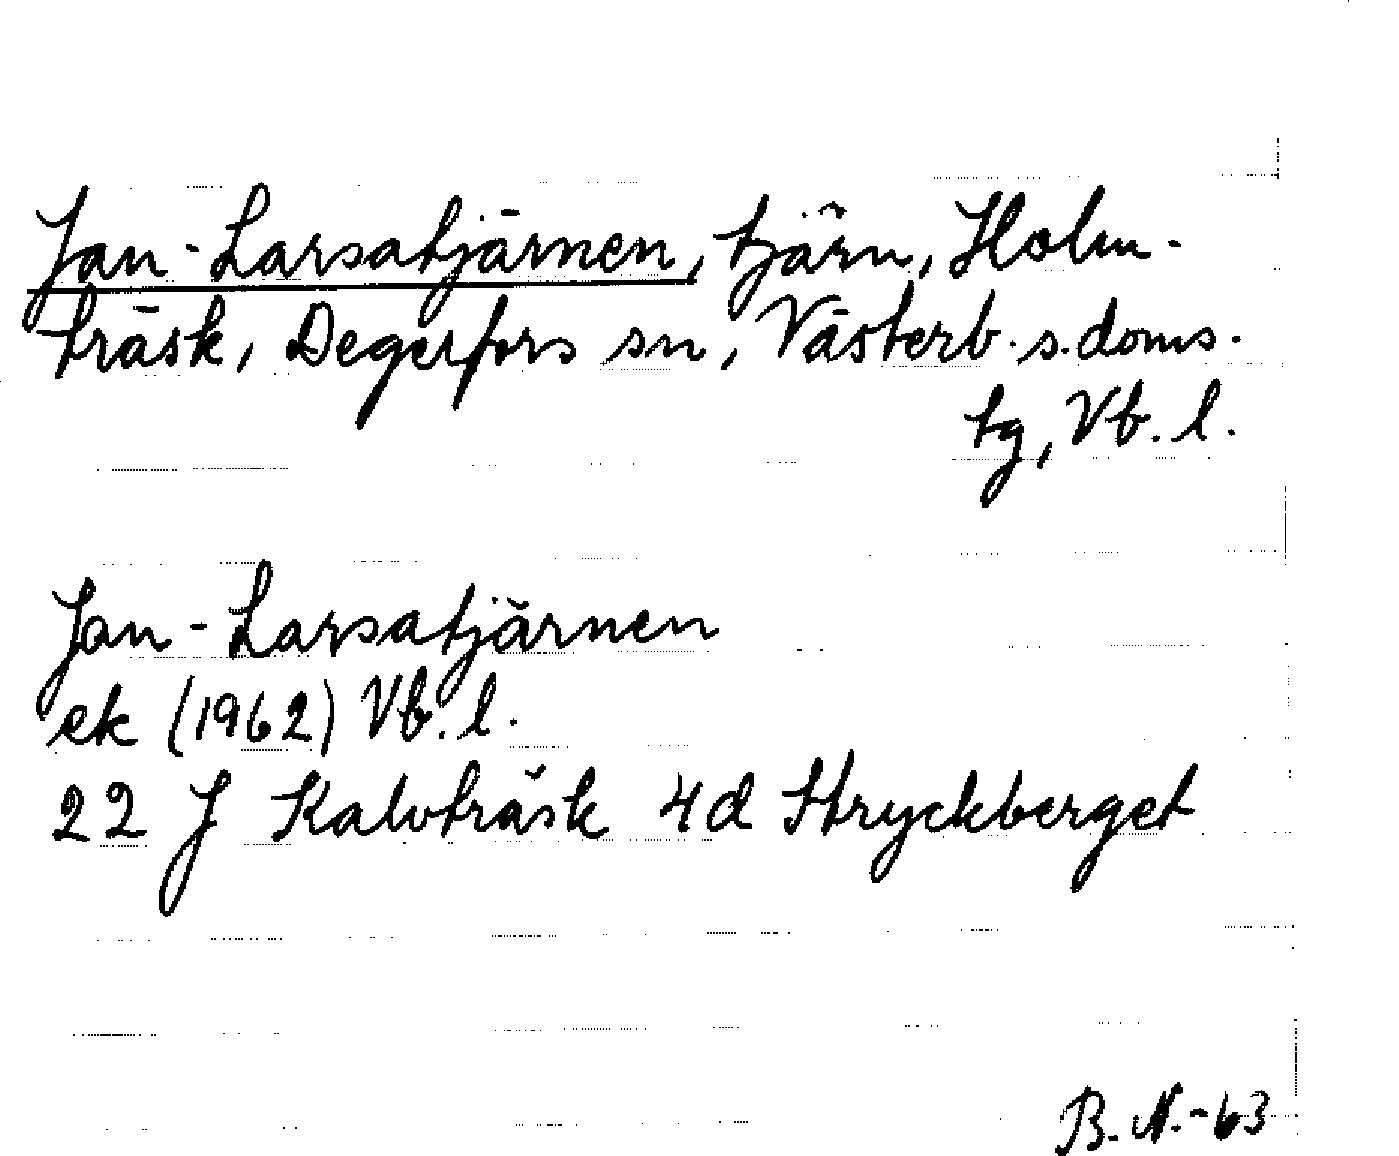 Jan-Larsatjärnen, tjärn, Holm-
träsk, Degerfors sn, Västerb. s. doms.
tg, Vb. l.
Jan-Larsatjärnen
ek (1962) Vb. l.
22 J Kalvträsk 4d Stryckberget
B. N. -63